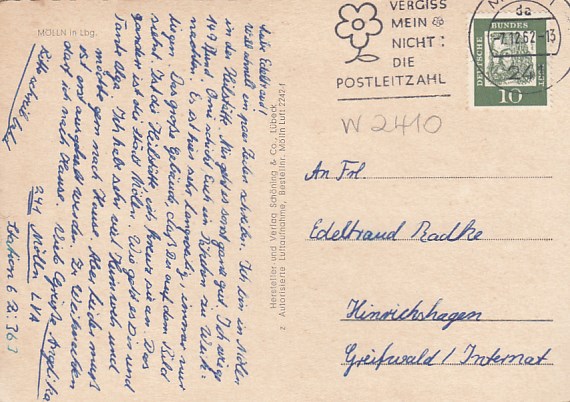 MÖLLN in Lbg.
Liebe Edeltraud!
Will schnell ein paar Zeilen schreiben. Ich bin in Mölln
in der Heilstätte. Mir geht es sonst ganz gut. Ich wiege
109 Pfund. Omi schickt Euch ein Päckchen zu Weih-
nachten. Es ist hier sehr langweilig, immer nur
liegen. Das große Gebäude, das Du auf dem Bild
siehst. Ist die Heilstätte, ich
ganz andere ist die Stadt Mölln. Wie geht es Dir und
Tante Olga. Ich habe sehr viel Heimweh und
möchte gern nach Hause. Aber leider muß
ich erst ausgeheilt werden. Zu Weihnachten
darf ich nach Hause. Viele Grüße Angelika
241 Mölln LVA
Station 6 Zi: 363
Bitte schreib bald
Hersteller und Verlag Schöning & Co., Lübeck
Autorisierte Luftaufnahme, Bestellnr. Mölln Luft 2242 f
VERGISS
MEIN
NICHT:
DIE
POSTLEITZAHL
da
-7.12.62-13
24
DEUTSCHE
BUNDES
POST
10
W 2410
An Frl.
Edeltraud Radtke
Hinrichshagen
Greifswald / Internat